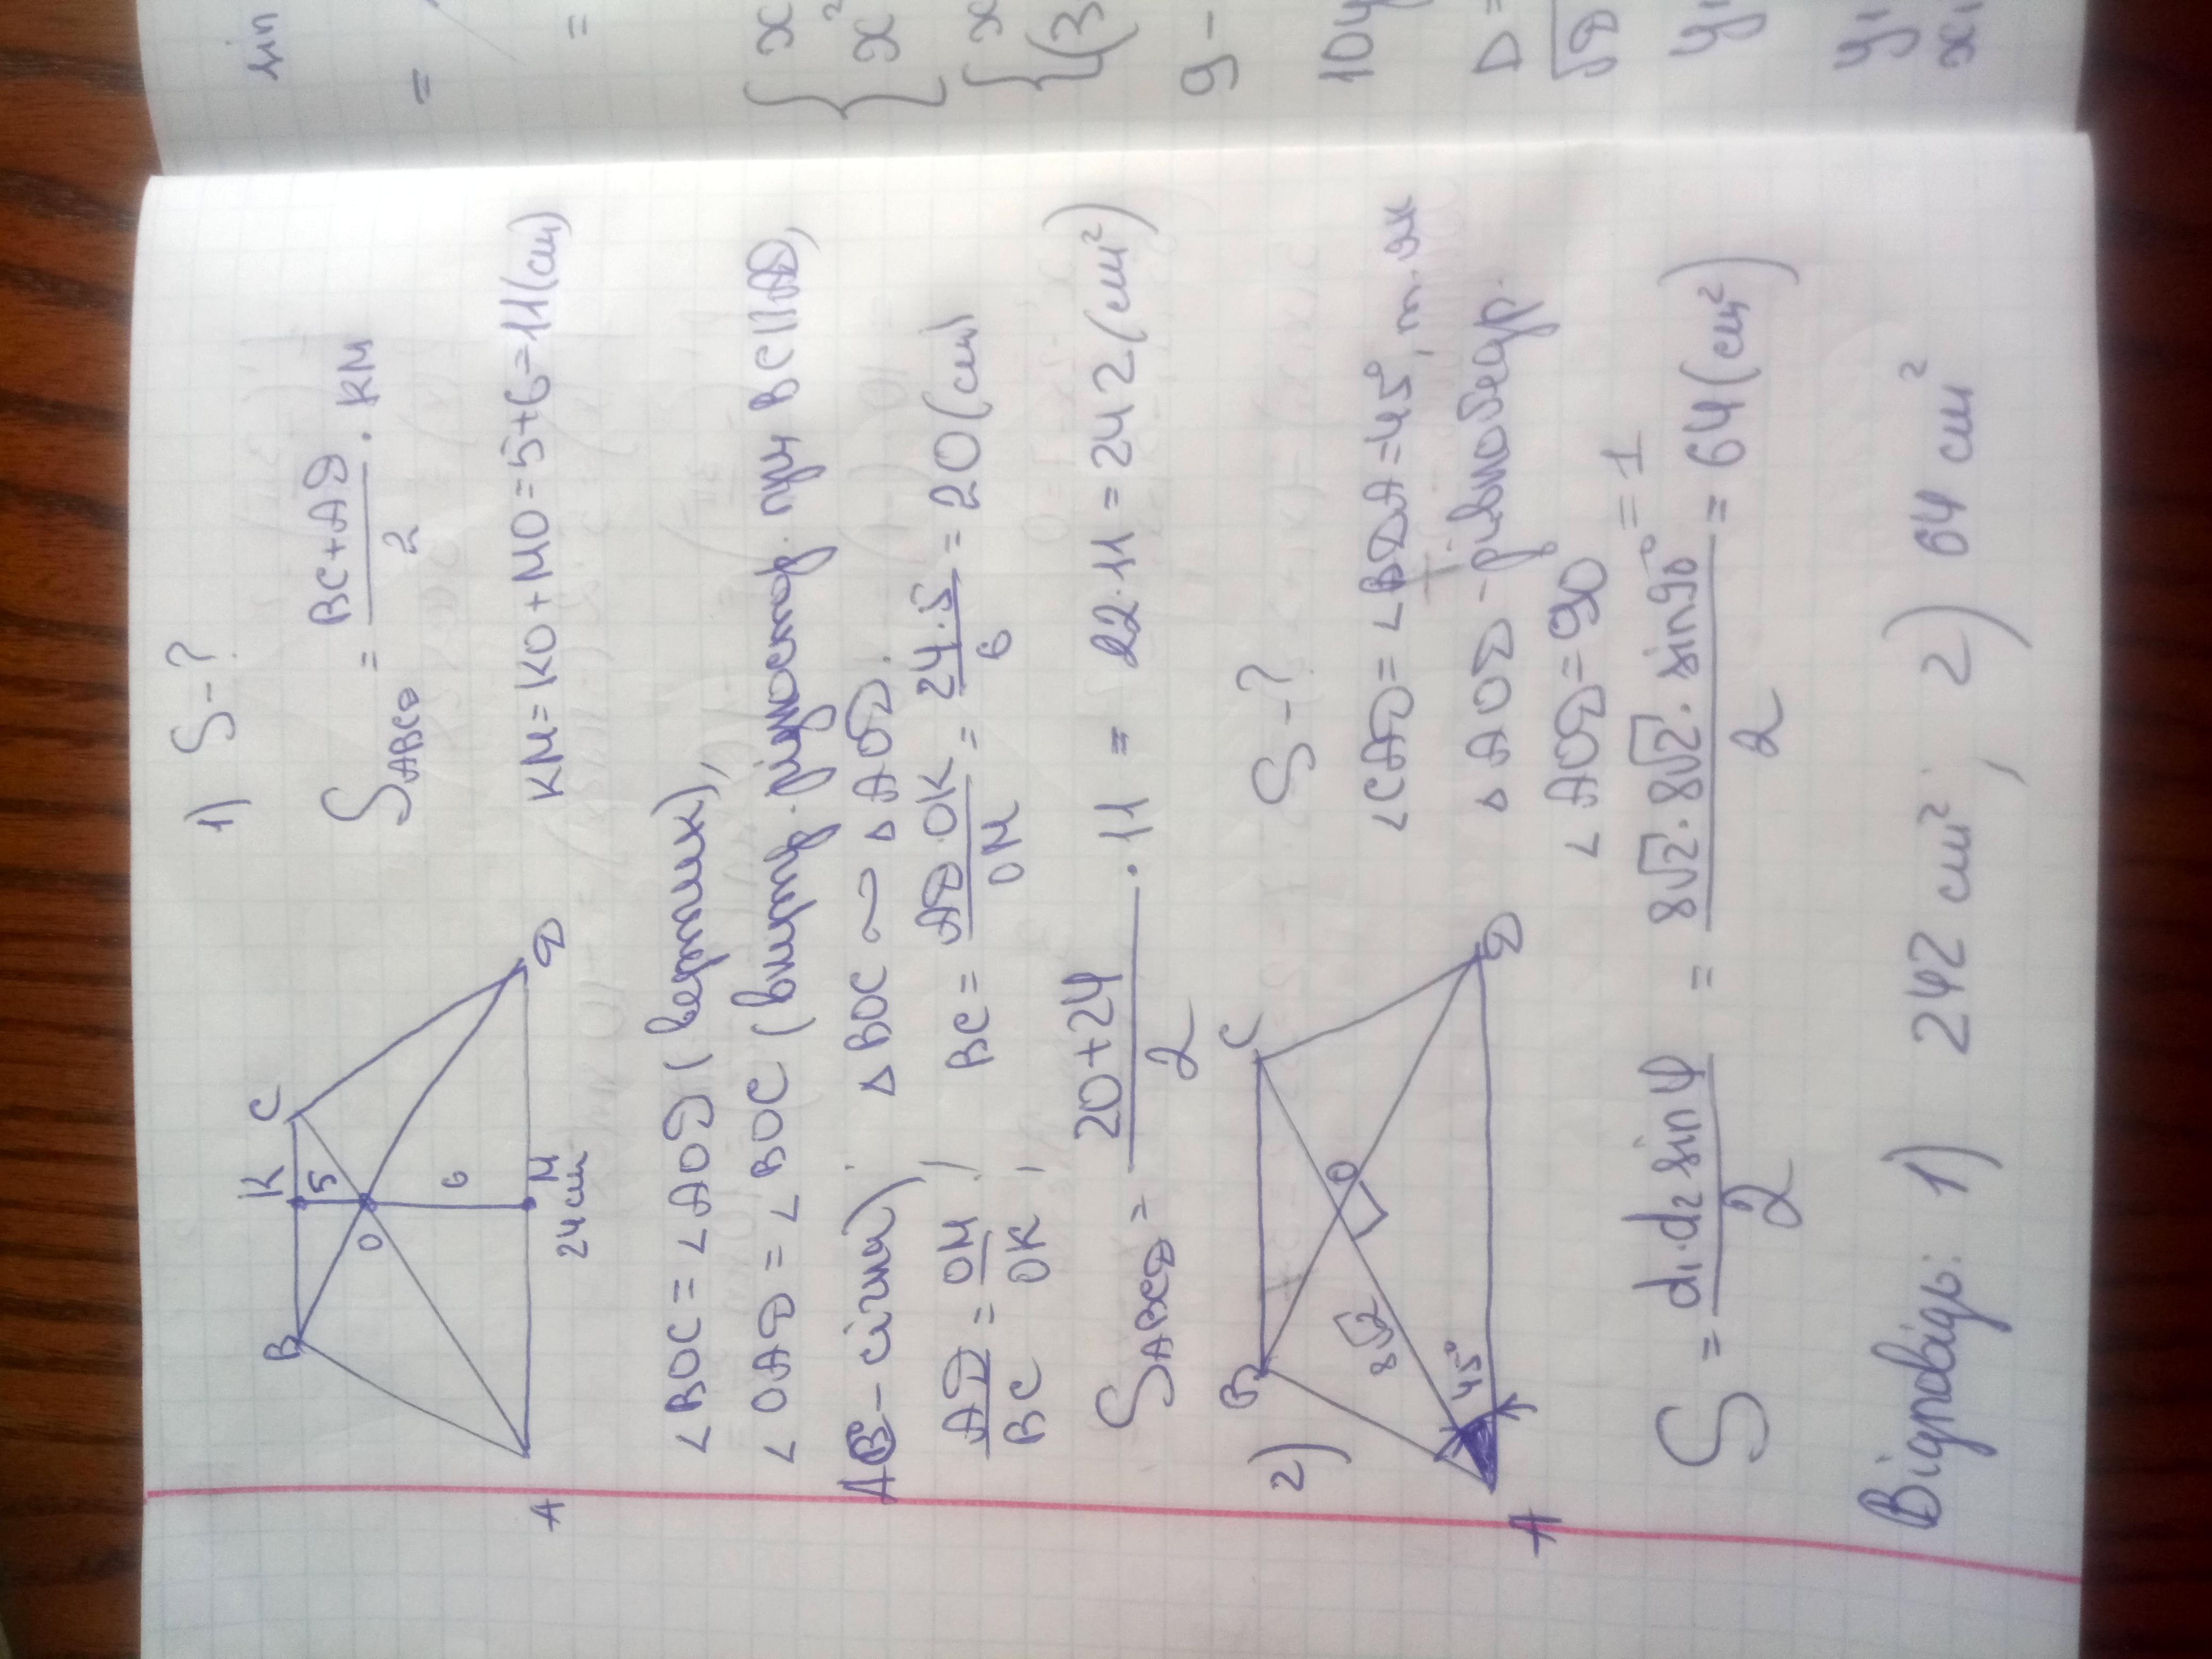 1) S-?
B K C
5
O
6
A M D
24 см
S ABCD = BC+AD / 2 · KM
KM = KO + MO = 5+6 = 11 (см)
∠BOC = ∠AOD (вертик),
∠OAD = ∠BOC (внутр. різностор. при BC||AD,
AC - січна) ; △BOC ~ △AOD.
AD/BC = OM/OK ; BC = AD·OK / OM = 24·5 / 6 = 20 (см)
S ABCD = 20+24 / 2 · 11 = 22·11 = 242 (см²)
2) S-?
B C
O
8√2
45°
A D
∠CAD = ∠BDA = 45°, т. як
△AOD - рівнобедр.
∠AOD = 90
S = d₁·d₂ sin φ / 2 = 8√2 · 8√2 · sin 90° / 2 = 64 (см²)
= 1
Відповідь: 1) 242 см² ; 2) 64 см²
sin
=
=
{ x
x²
{ x
(3
9 -
10y
D =
√D
y₁
y₁
x₁